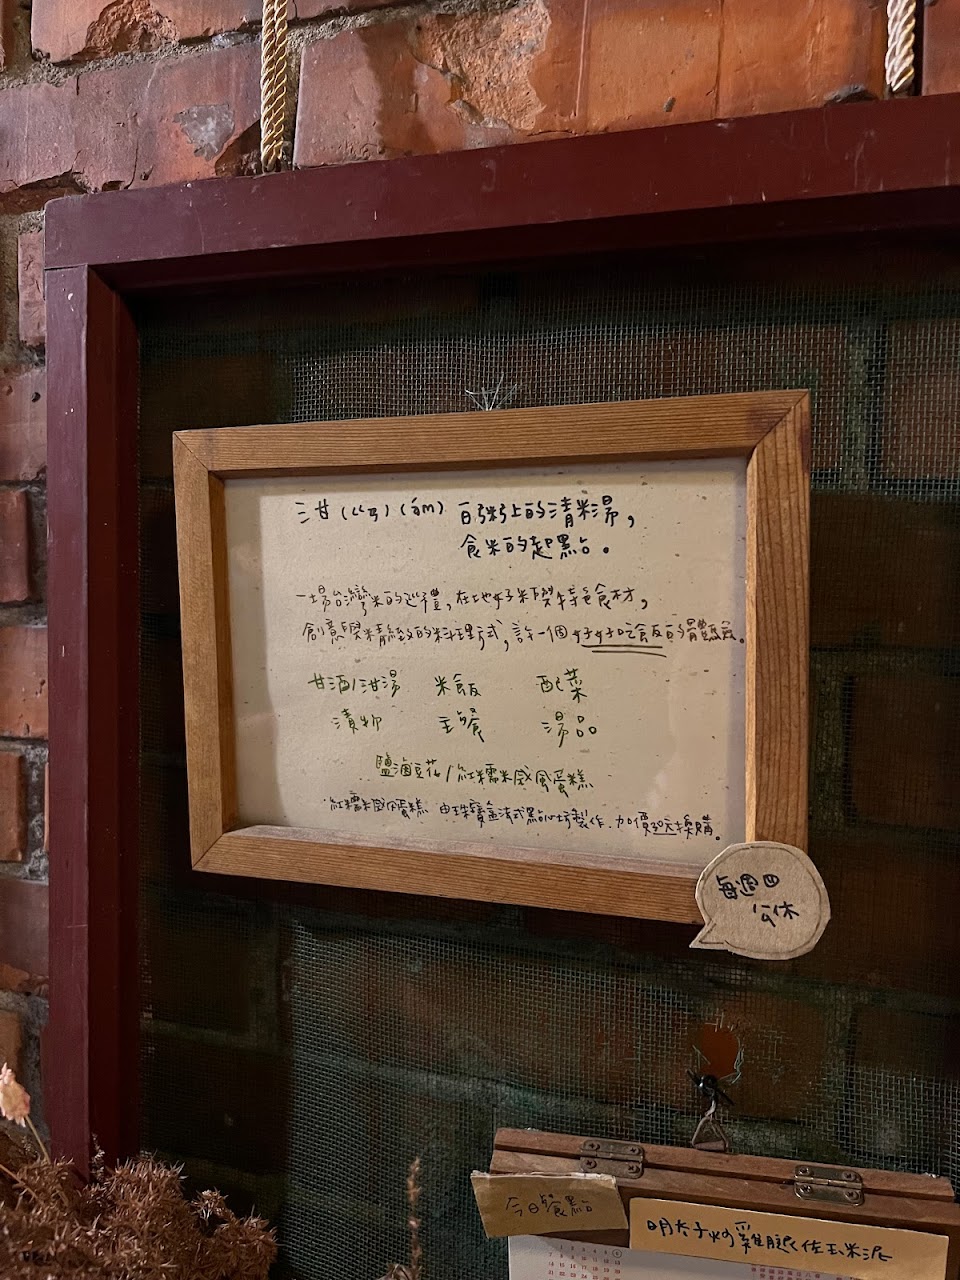 泔(ㄍㄢ)(ám) 白粥上的清米湯，
食米的起點。
一場台灣米的巡禮，在地好米與特色食材，
創意與精緻的料理方式，許一個好好吃飯的體驗。
甘酒/泔湯 米飯 配菜
漬物 主餐 湯品
鹽滷豆花/紅糯米戚風蛋糕
紅糯米戚風蛋糕 由珠寶盒法式點心坊製作．加價30元換購。
每週四
公休
今日餐點
明太子烤雞腿佐玉米泥